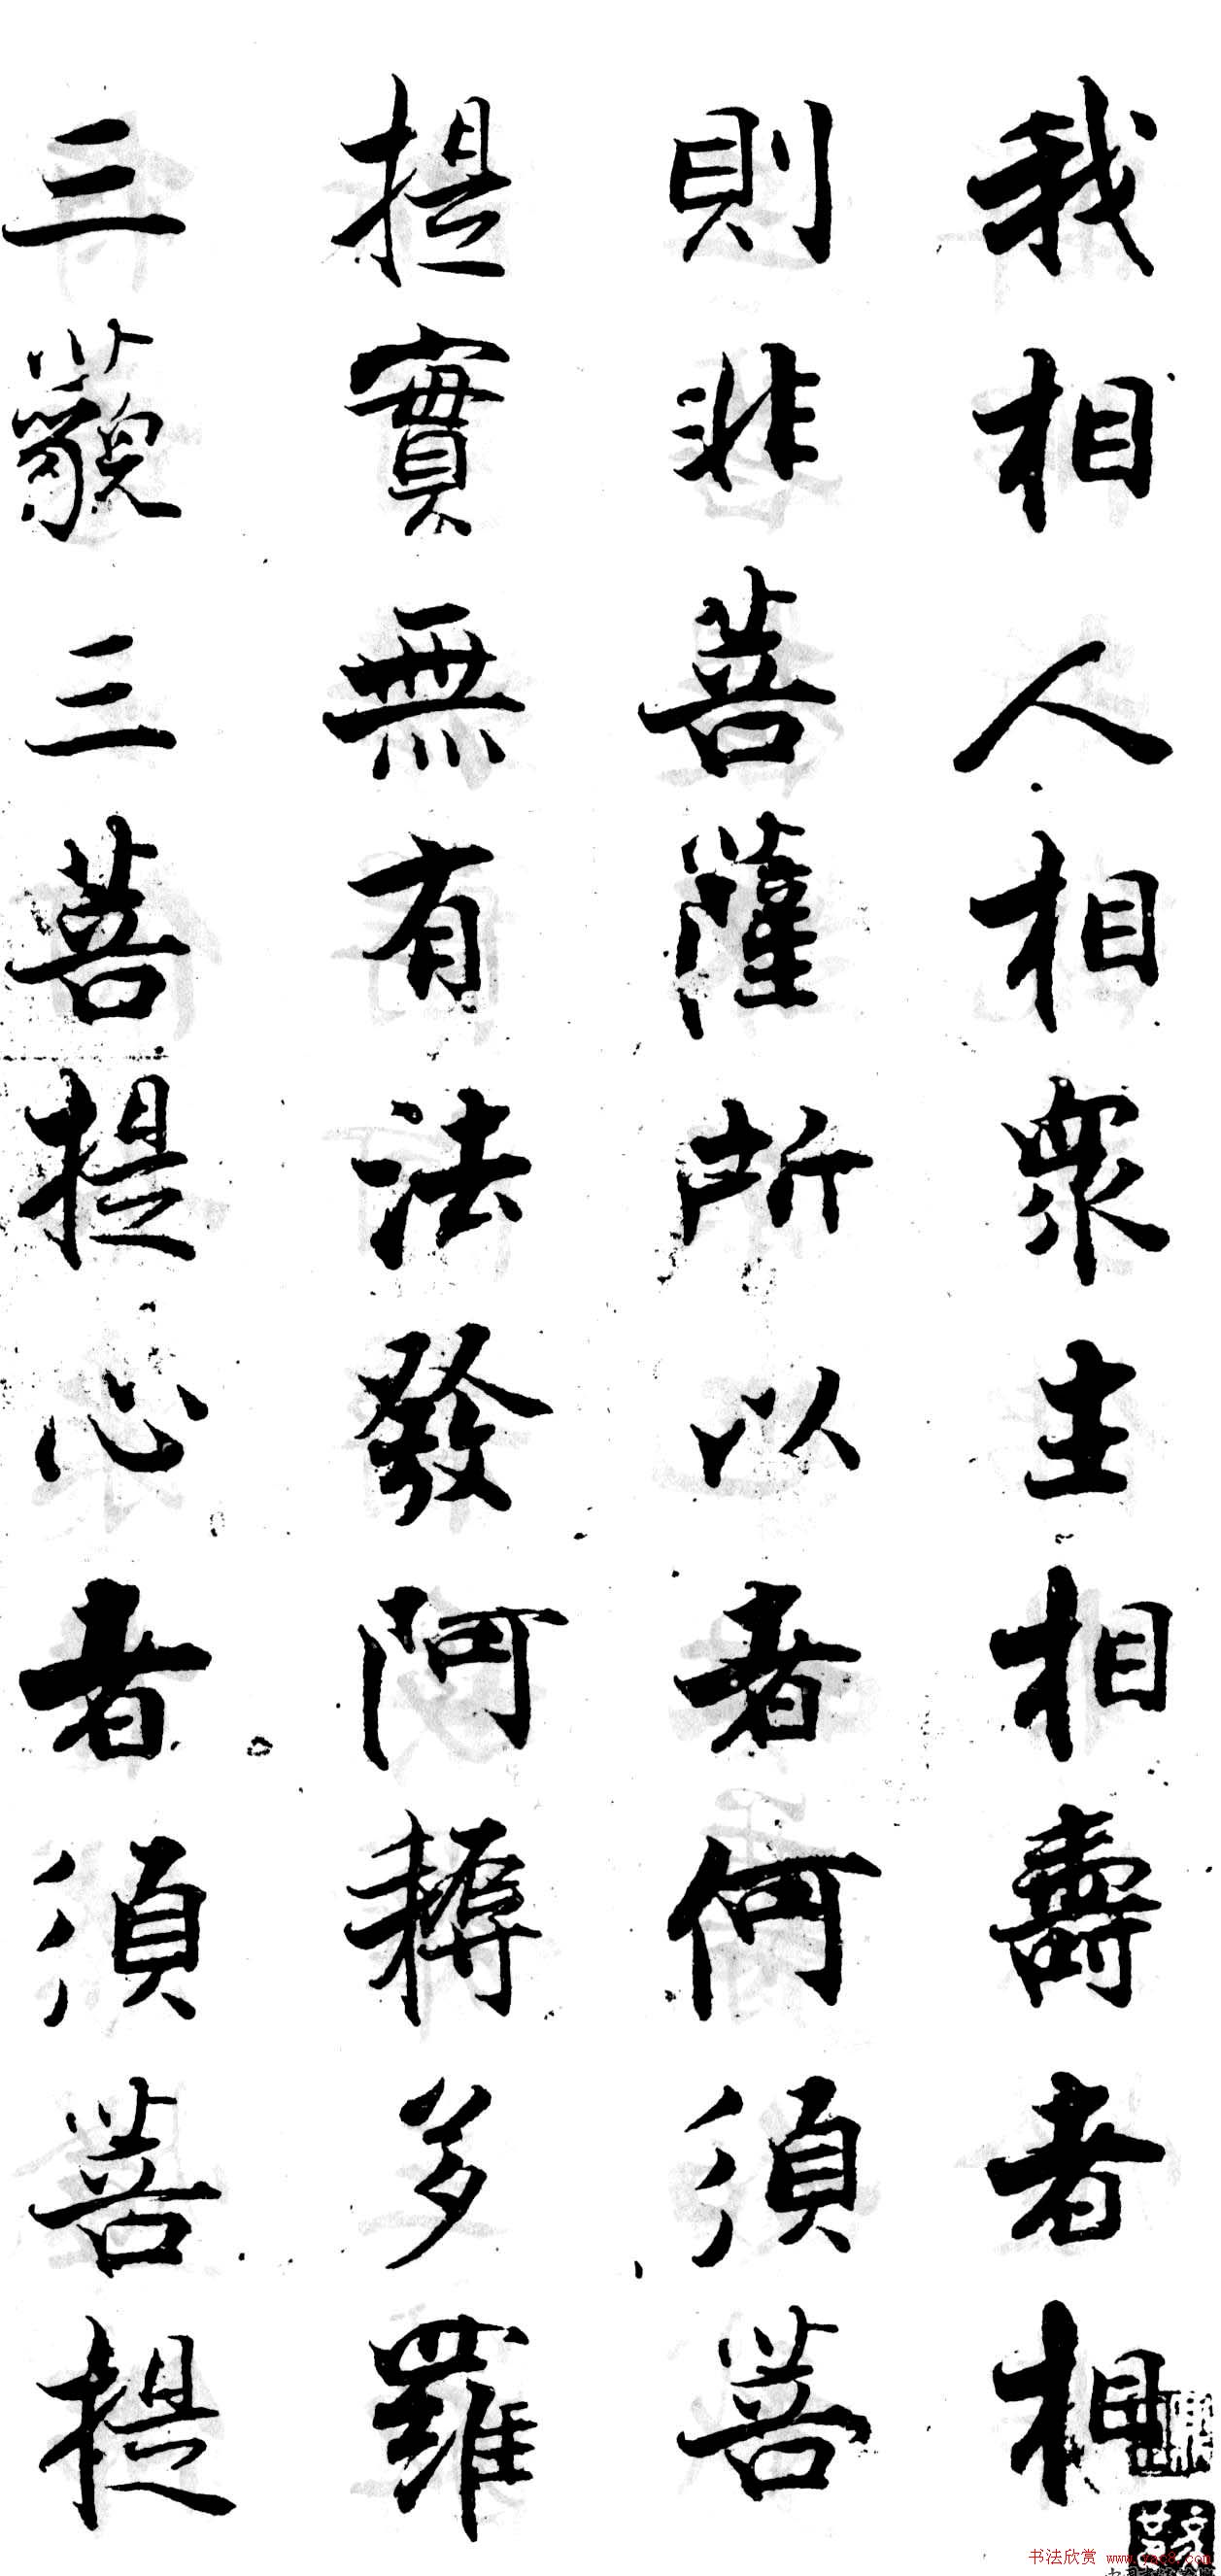 我相人相眾生相壽者相
則非菩薩所以者何須菩
提實無有法發阿耨多羅
三藐三菩提心者須菩提
书法欣赏 www.yac8.com